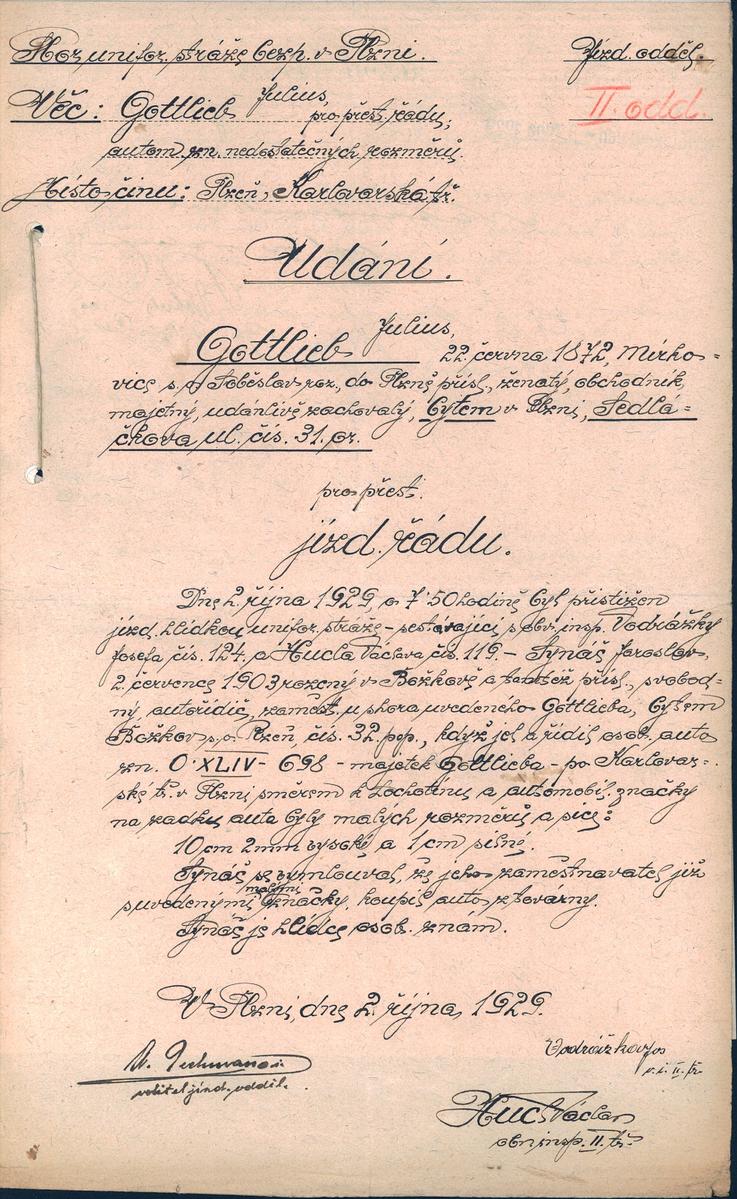 Sbor unifor. stráže bezp. v Plzni.
Jízd. odděl.
II. odd.
Věc: Gottlieb Julius,
pro přest. řádu,
autom. zn. nedostatečných rozměrů.
Místo činu: Plzeň, Karlovarská tř.
Udání.
Gottlieb Julius,
22. června 1872, Mirho-
vice s. p. Soběslav roz., do Plzně přísl., ženatý, obchodník,
majetný, udánlivě zachovalý, bytem v Plzni, Sedlá-
čkova ul. čís. 31. pr.
pro přest.
jízd. řádu.
Dne 2. října 1929, o 7·50 hodině byl přistižen
jízd. hlídkou unifor. stráže - sestávající s obv. insp. Vodrážky
Josefa čís. 124. a Hucla Václava čís. 119. - Tynáš Jaroslav,
2. července 1903 rozený v Božkově a tamtéž přísl., svobod-
ný, autořidič, zaměst. u shora uvedeného Gottlieba, bytem
Božkov s. p. Plzeň čís. 32 pop., když jel a řídil osob. auto
zn. O·XLIV - 698 - majetek Gottlieba - po Karlovar-
ské tř. v Plzni směrem k Lochotínu a automobil. značky
na zadku auta byly malých rozměrů a sice:
10 cm 2 mm vysoké a 1 cm silné.
Tynáš se vymlouval, že jeho zaměstnavatel již
s uvedenými malými značky, koupil auto z továrny.
Tynáš je hlídce osob. znám.
V Plzni, dne 2. října 1929.
velitel jízd. oddíl.
Vodrážka Jos
o. i. II. tř.
Hucl Václav
obv. insp. II. tř.